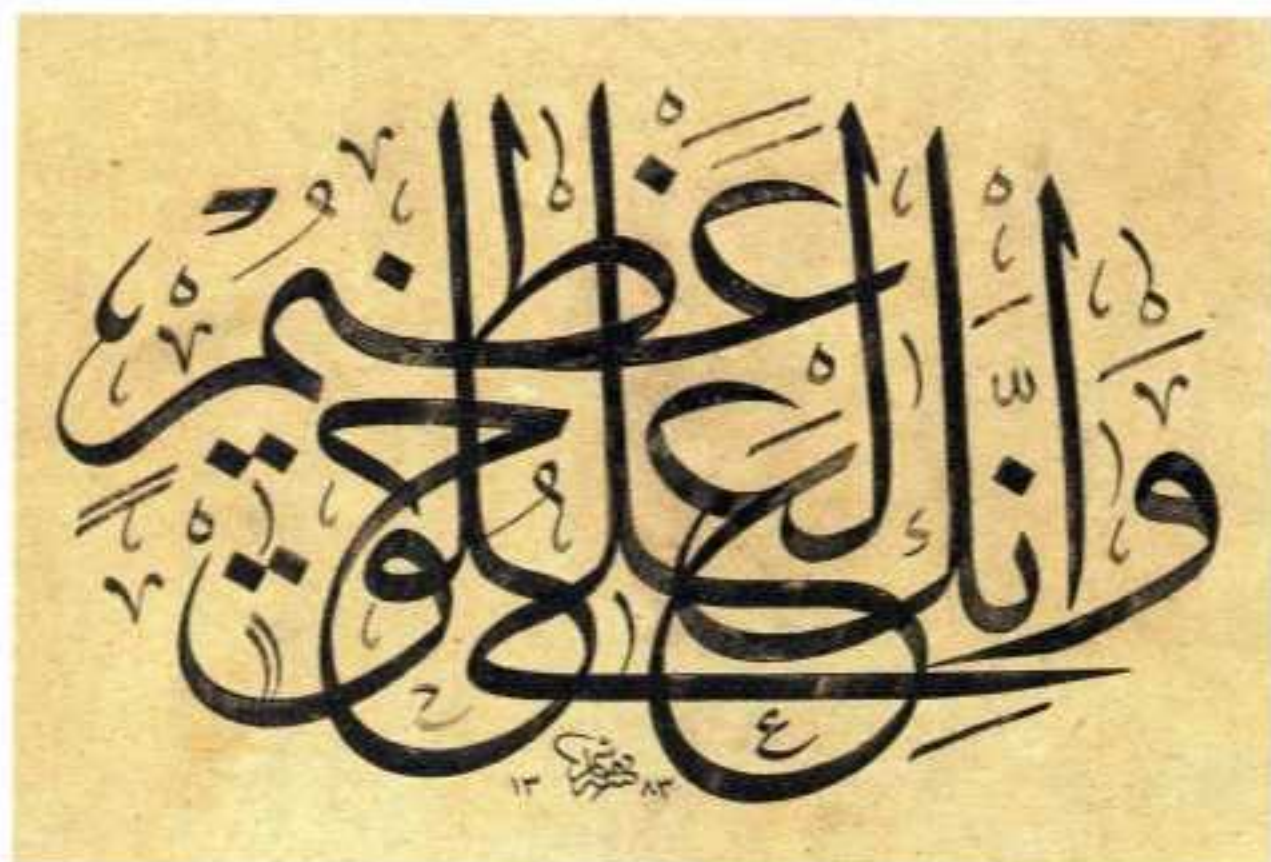 وَإِنَّكَ لَعَلَىٰ خُلُقٍ عَظِيمٍ
١٣٨٣